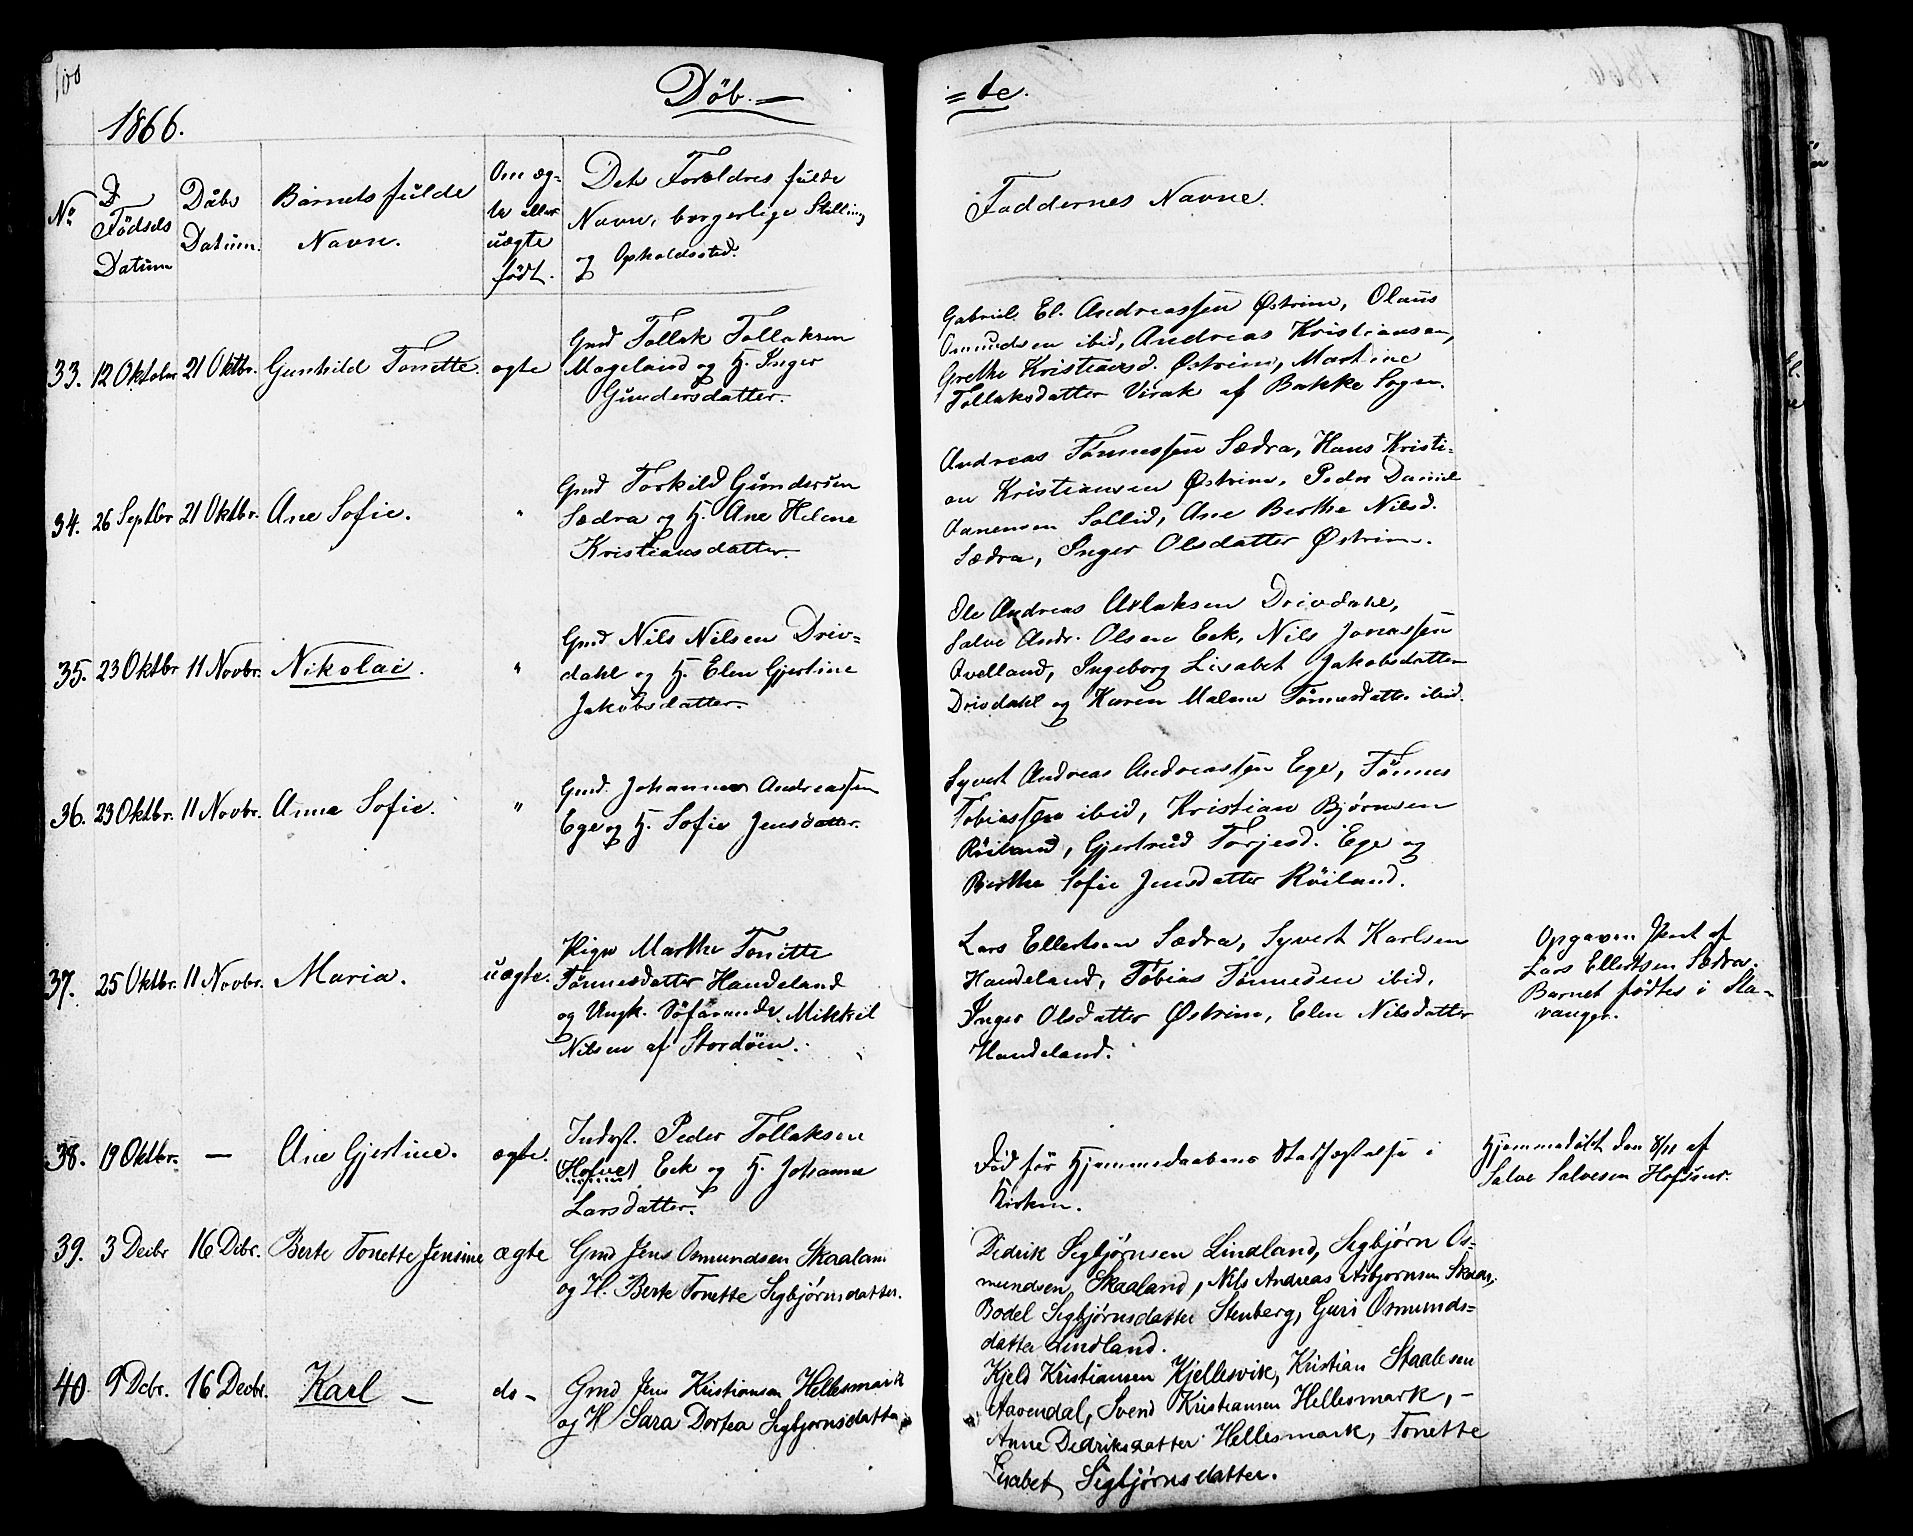 100
Döb.=
= te.
1866.
No
D Fødsels Datum
Dåbs Datum.
Barnets fulde Navn.
Om æg-
te eller
uægte
født.
Det Foreldres fulde
Navn, borgerlige Stilling
og Opholdssted.
Faddernes Navne.
33. 12 Oktober 21 Oktbr. Gunhild Tonette. ægte
Gmd Tollak Tollaksen
Mageland og H. Inger
Gundersdatter.
Gabriel El. Andreassen Østrim, Olaus
Omundsen ibid, Andreas Kristiansen,
Grethe Kristiansd. Østrim, Martine
Tollaksdatter Virak af Bakke Sogn.
34. 26 Septbr 21 Oktbr. Ane Sofie. "
Gmd Torkild Gundersen
Sædra og H. Ane Helene
Kristiansdatter.
Andreas Tönnessen Sædra, Hans Kristi-
an Kristiansen Østrim, Peder Daniel
Aanensen Sollid, Ane Berthe Nilsd.
Sædra, Inger Olsdatter Østrim.
35. 23 Oktbr 11 Novbr. Nikolai. "
Gmd Nils Nilsen Driv=
dahl og H. Elen Gjertine
Jakobsdatter.
Ole Andreas Aslaksen Drivdahl,
Salve Andr. Olsen Eek, Nils Jonassen
Qvelland, Ingeborg Lisabet Jakobsdatter
Drivdahl og Karen Malene Tönnesdatt. ibid.
36. 23 Oktbr. 11 Novbr. Anna Sofie. "
Gmd. Johannes Andreassen
Ege og H. Sofie Jensdatter.
Syvert Andreas Andreassen Ege, Tönnes
Tobiassen ibid, Kristian Bjørnsen
Röiland, Gjertrud Torjesd. Ege og
Berthe Sofie Jensdatter Röiland.
37. 25 Oktbr. 11 Novbr. Maria. uægte.
Pige Marthe Tonette
Tönnesdatter Handeland
og Ungk. Söfarende Mikkel
Nilsen af Stordöen.
Lars Ellertsen Sædra, Syvert Karlsen
Handeland, Tobias Tönnesen ibid,
Inger Olsdatter Østrim, Elen Nilsdatter
Handeland.
Opgaven skeet af
Lars Ellertsen Sædra.
Barnet fødtes i Sta-
vanger.
38. 19 Oktbr. — Ane Gjertine. ægte.
Inderst. Peder Tollaksen
(Hofve) Eek og H. Johanne
Larsdatter.
Död för Hjemmedaabens Stadfæstelse i
Kirken.
Hjemmedöbt den 8/11 af
Salve Salvesen Hofsmr.
39. 3 Decbr 16 Dcbr. Berte Tonette Jensine ægte
Gmd Jens Osmundsen Skaaland
og H. Berte Tonette Sigbjørnsdatter.
Didrik Sigbjørnsen Lindland, Sigbjørn Os-
mundsen Skaaland, Nils Andreas Asbjørnsen Skaal,
Bodel Sigbjørnsdatter Stenberg, Guri Osmunds=
datter Lindland.
40. 9 Dcbr. 16 Decbr. Karl — do -
Gmd Jens Kristiansen Hellesmark
og H Sara Dortea Sigbjørnsdatter
Kjeld Kristiansen Kjellesvik, Kristian Staalesen
Aavendal, Svend Kristiansen Hellesmark, -
Anne Didriksdatter Hellesmark, Tonette
Lisabet Sigbjørnsdatter.